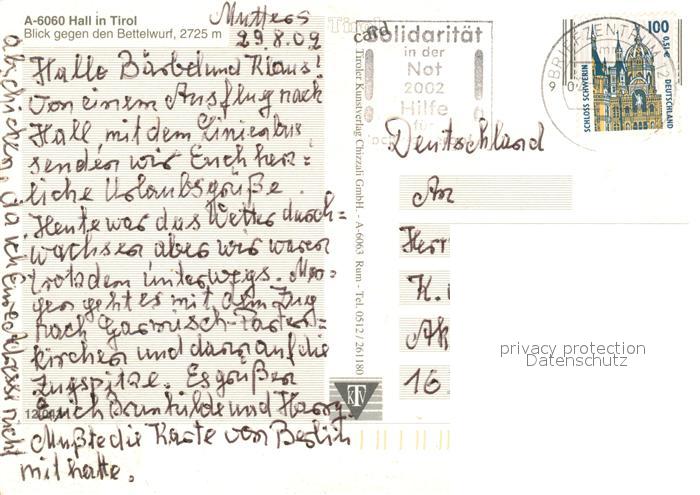 A-6060 Hall in Tirol
Blick gegen den Bettelwurf, 2725 m
Mutters
29.8.02
Hallo Bärbel und Klaus!
Von einem Ausflug nach
Hall mit dem Linienbus
senden wir Euch herz=
liche Urlaubsgrüße.
Heute war das Wetter durch=
wachsen aber wir waren
trotzdem unterwegs. Mor=
gen geht es mit dem Zug
nach Garmisch-Parten=
kirchen und dann auf die
Zugspitze. Es grüßen
Euch Brunhilde und Harry.
Mußte die Karte von Berlin
abschicken, da ich Eure Adresse nicht
mit hatte.
Tiroler Kunstverlag Chizzali GmbH. - A-6063 Rum - Tel. 0512/261180
KTV
card
Solidarität
in der
Not
2002
Hilfe
für
BRIEFZENTRUM 12
100
0,51€
DEUTSCHLAND
SCHLOSS SCHWERIN
Deutschland
An
Herr
K.
16
privacy protection
Datenschutz